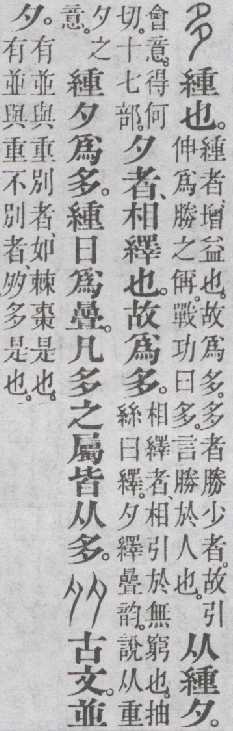 多 緟也。緟者、增益也。故爲多。多者勝少者。故引伸爲勝之偁。戰功曰多。言勝於人也。从緟夕。
會意。得何切。十七部。夕者、相繹也。故爲多。相繹者、相引於無窮也。抽絲曰繹。夕繹曡韵。說从重
夕之意。緟夕爲多。緟日爲曡。凡多之屬皆从多。𡖇古文。並
夕。有並與重別者、如棘棗是也。有並與重不別者𡖇多是也。